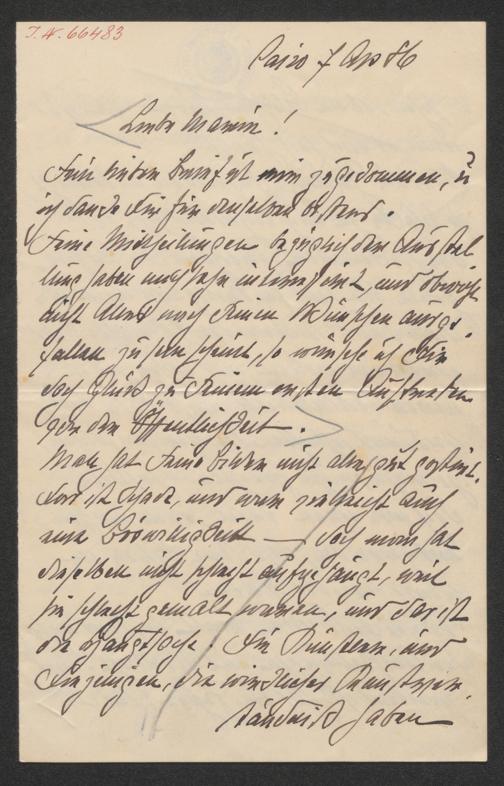 I.N. 66483
Cairo 7 Apr 86
Liebe Marie!
Dein lieber Brief ist mir zugekommen, u
ich danke Dir für denselben bestens.
Deine Mittheilungen bezüglich der Ausstel
lung haben mich sehr interessirt, und obwohl
nicht Alles nach Deinen Wünschen ausge
fallen zu sein scheint, so wünsche ich Dir
doch Glück zu Deinem ersten Auftreten
vor der Öffentlichkeit.
Man hat Deine Bilder nicht sehr gut postirt.
Das ist schade, und war vielleicht auch
eine Böswilligkeit — doch man hat
dieselben nicht schlecht aufgehängt, weil
sie schlecht gemalt waren, und das ist
die Hauptsache. Die Künstler, und
diejenigen, die wirkliches Kunstver
ständniß haben